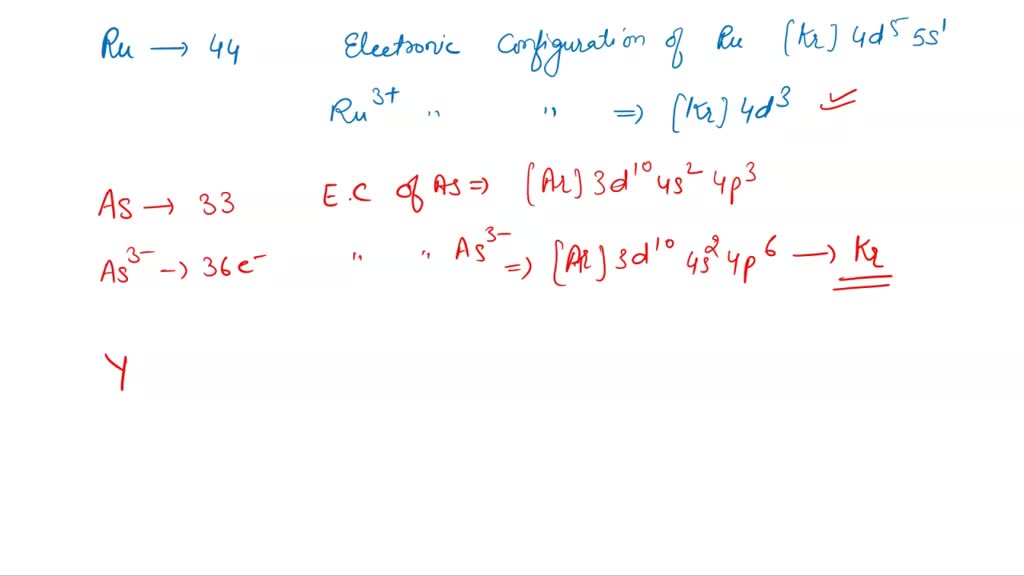 Ru → 44 Electronic Configuration of Ru [Kr] 4d⁵ 5s¹
Ru³⁺ " " ⇒ [Kr] 4d³ ✓
As → 33 E.C of As ⇒ [Ar] 3d¹⁰ 4s² 4p³
As³⁻ → 36e⁻ " " As³⁻ ⇒ [Ar] 3d¹⁰ 4s² 4p⁶ → Kr
Y